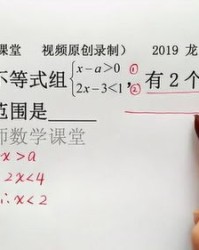 课堂 视频原创录制） 2019 龙
不等式组{x-a>0 ①
2x-3<1 ②, 有2个
范围是_____
师数学课堂
x>a
2x<4
∴x<2